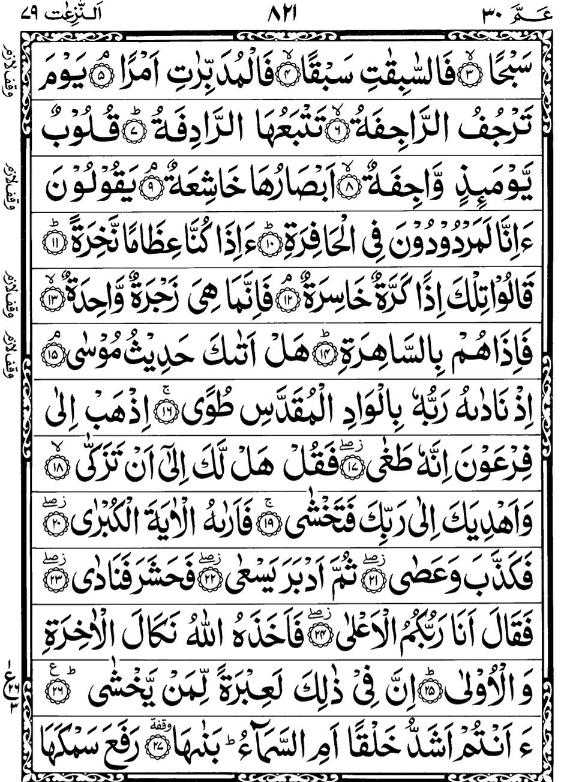 عَمَّ ٣٠ ٨٢١ اَلنّٰزِعٰت ٧٩
سَبْحًا ۙ﴿۳﴾ فَالسّٰبِقٰتِ سَبْقًا ۙ﴿۴﴾ فَالْمُدَبِّرٰتِ اَمْرًا ۘ﴿۵﴾ يَوْمَ
وقف لازم
تَرْجُفُ الرَّاجِفَةُ ۙ﴿۶﴾ تَتْبَعُهَا الرَّادِفَةُ ؕ﴿۷﴾ قُلُوْبٌ
يَّوْمَئِذٍ وَّاجِفَةٌ ۙ﴿۸﴾ اَبْصَارُهَا خَاشِعَةٌ ۘ﴿۹﴾ يَقُوْلُوْنَ
وقف لازم
ءَاِنَّا لَمَرْدُوْدُوْنَ فِى الْحَافِرَةِ ؕ﴿۱۰﴾ ءَاِذَا كُنَّا عِظَامًا نَّخِرَةً ؕ﴿۱۱﴾
قَالُوْا تِلْكَ اِذًا كَرَّةٌ خَاسِرَةٌ ۘ﴿۱۲﴾ فَاِنَّمَا هِىَ زَجْرَةٌ وَّاحِدَةٌ ۙ﴿۱۳﴾
وقف لازم
فَاِذَا هُمْ بِالسَّاهِرَةِ ؕ﴿۱۴﴾ هَلْ اَتٰٮكَ حَدِيْثُ مُوْسٰى ۘ﴿۱۵﴾
وقف لازم
اِذْ نَادٰٮهُ رَبُّهٗ بِالْوَادِ الْمُقَدَّسِ طُوًى ۚ﴿۱۶﴾ اِذْهَبْ اِلٰى
فِرْعَوْنَ اِنَّهٗ طَغٰى ۖ﴿۱۷﴾ فَقُلْ هَلْ لَّكَ اِلٰٓى اَنْ تَزَكّٰى ۙ﴿۱۸﴾
وَاَهْدِيَكَ اِلٰى رَبِّكَ فَتَخْشٰى ۚ﴿۱۹﴾ فَاَرٰٮهُ الْاٰيَةَ الْكُبْرٰى ۖ﴿۲۰﴾
فَكَذَّبَ وَعَصٰى ۖ﴿۲۱﴾ ثُمَّ اَدْبَرَ يَسْعٰى ۖ﴿۲۲﴾ فَحَشَرَ فَنَادٰى ۖ﴿۲۳﴾
فَقَالَ اَنَا رَبُّكُمُ الْاَعْلٰى ۖ﴿۲۴﴾ فَاَخَذَهُ اللّٰهُ نَكَالَ الْاٰخِرَةِ
وَ الْاُوْلٰى ؕ﴿۲۵﴾ اِنَّ فِىْ ذٰلِكَ لَعِبْرَةً لِّمَنْ يَّخْشٰى ؕ﴿۲۶﴾ ع
ءَ اَنْتُمْ اَشَدُّ خَلْقًا اَمِ السَّمَآءُ ؕ بَنٰٮهَا ﴿۲۷﴾ وقفة رَفَعَ سَمْكَهَا